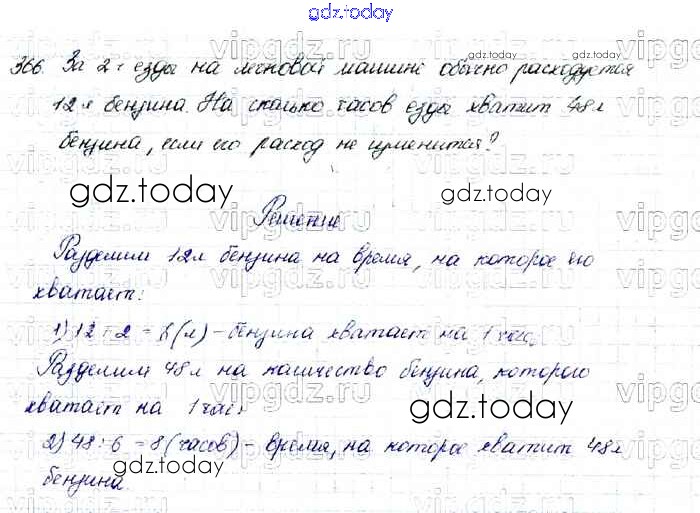 gdz.today
366. За 2 ч езды на легковой машине обычно расходуется
12 л бензина. На сколько часов езды хватит 48 л
бензина, если его расход не изменится?
gdz.today gdz.today
Решение
Разделим 12 л бензина на время, на которое его
хватает:
1) 12 : 2 = 6 (л) – бензина хватает на 1 час.
Разделим 48 л на количество бензина, которого
хватает на 1 час:
gdz.today
2) 48 : 6 = 8 (часов) – время, на которое хватит 48 л
gdz.today
бензина.